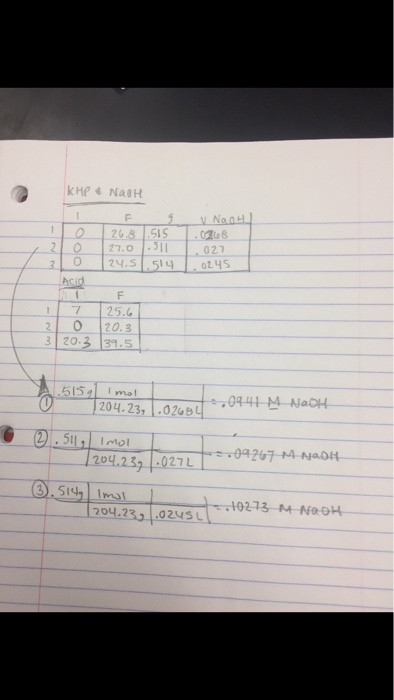 KHP & NaOH
I F g V NaOH
1 0 26.8 .515 .0268
2 0 27.0 .511 .027
3 0 24.5 .514 .0245
Acid
I F
1 7 25.6
2 0 20.3
3 20.3 39.5
① .515g 1 mol
204.23g .0268L = .0941 M NaOH
② .511g 1 mol
204.23g .027L = .09267 M NaOH
③ .514g 1 mol
204.23g .0245L = .10273 M NaOH